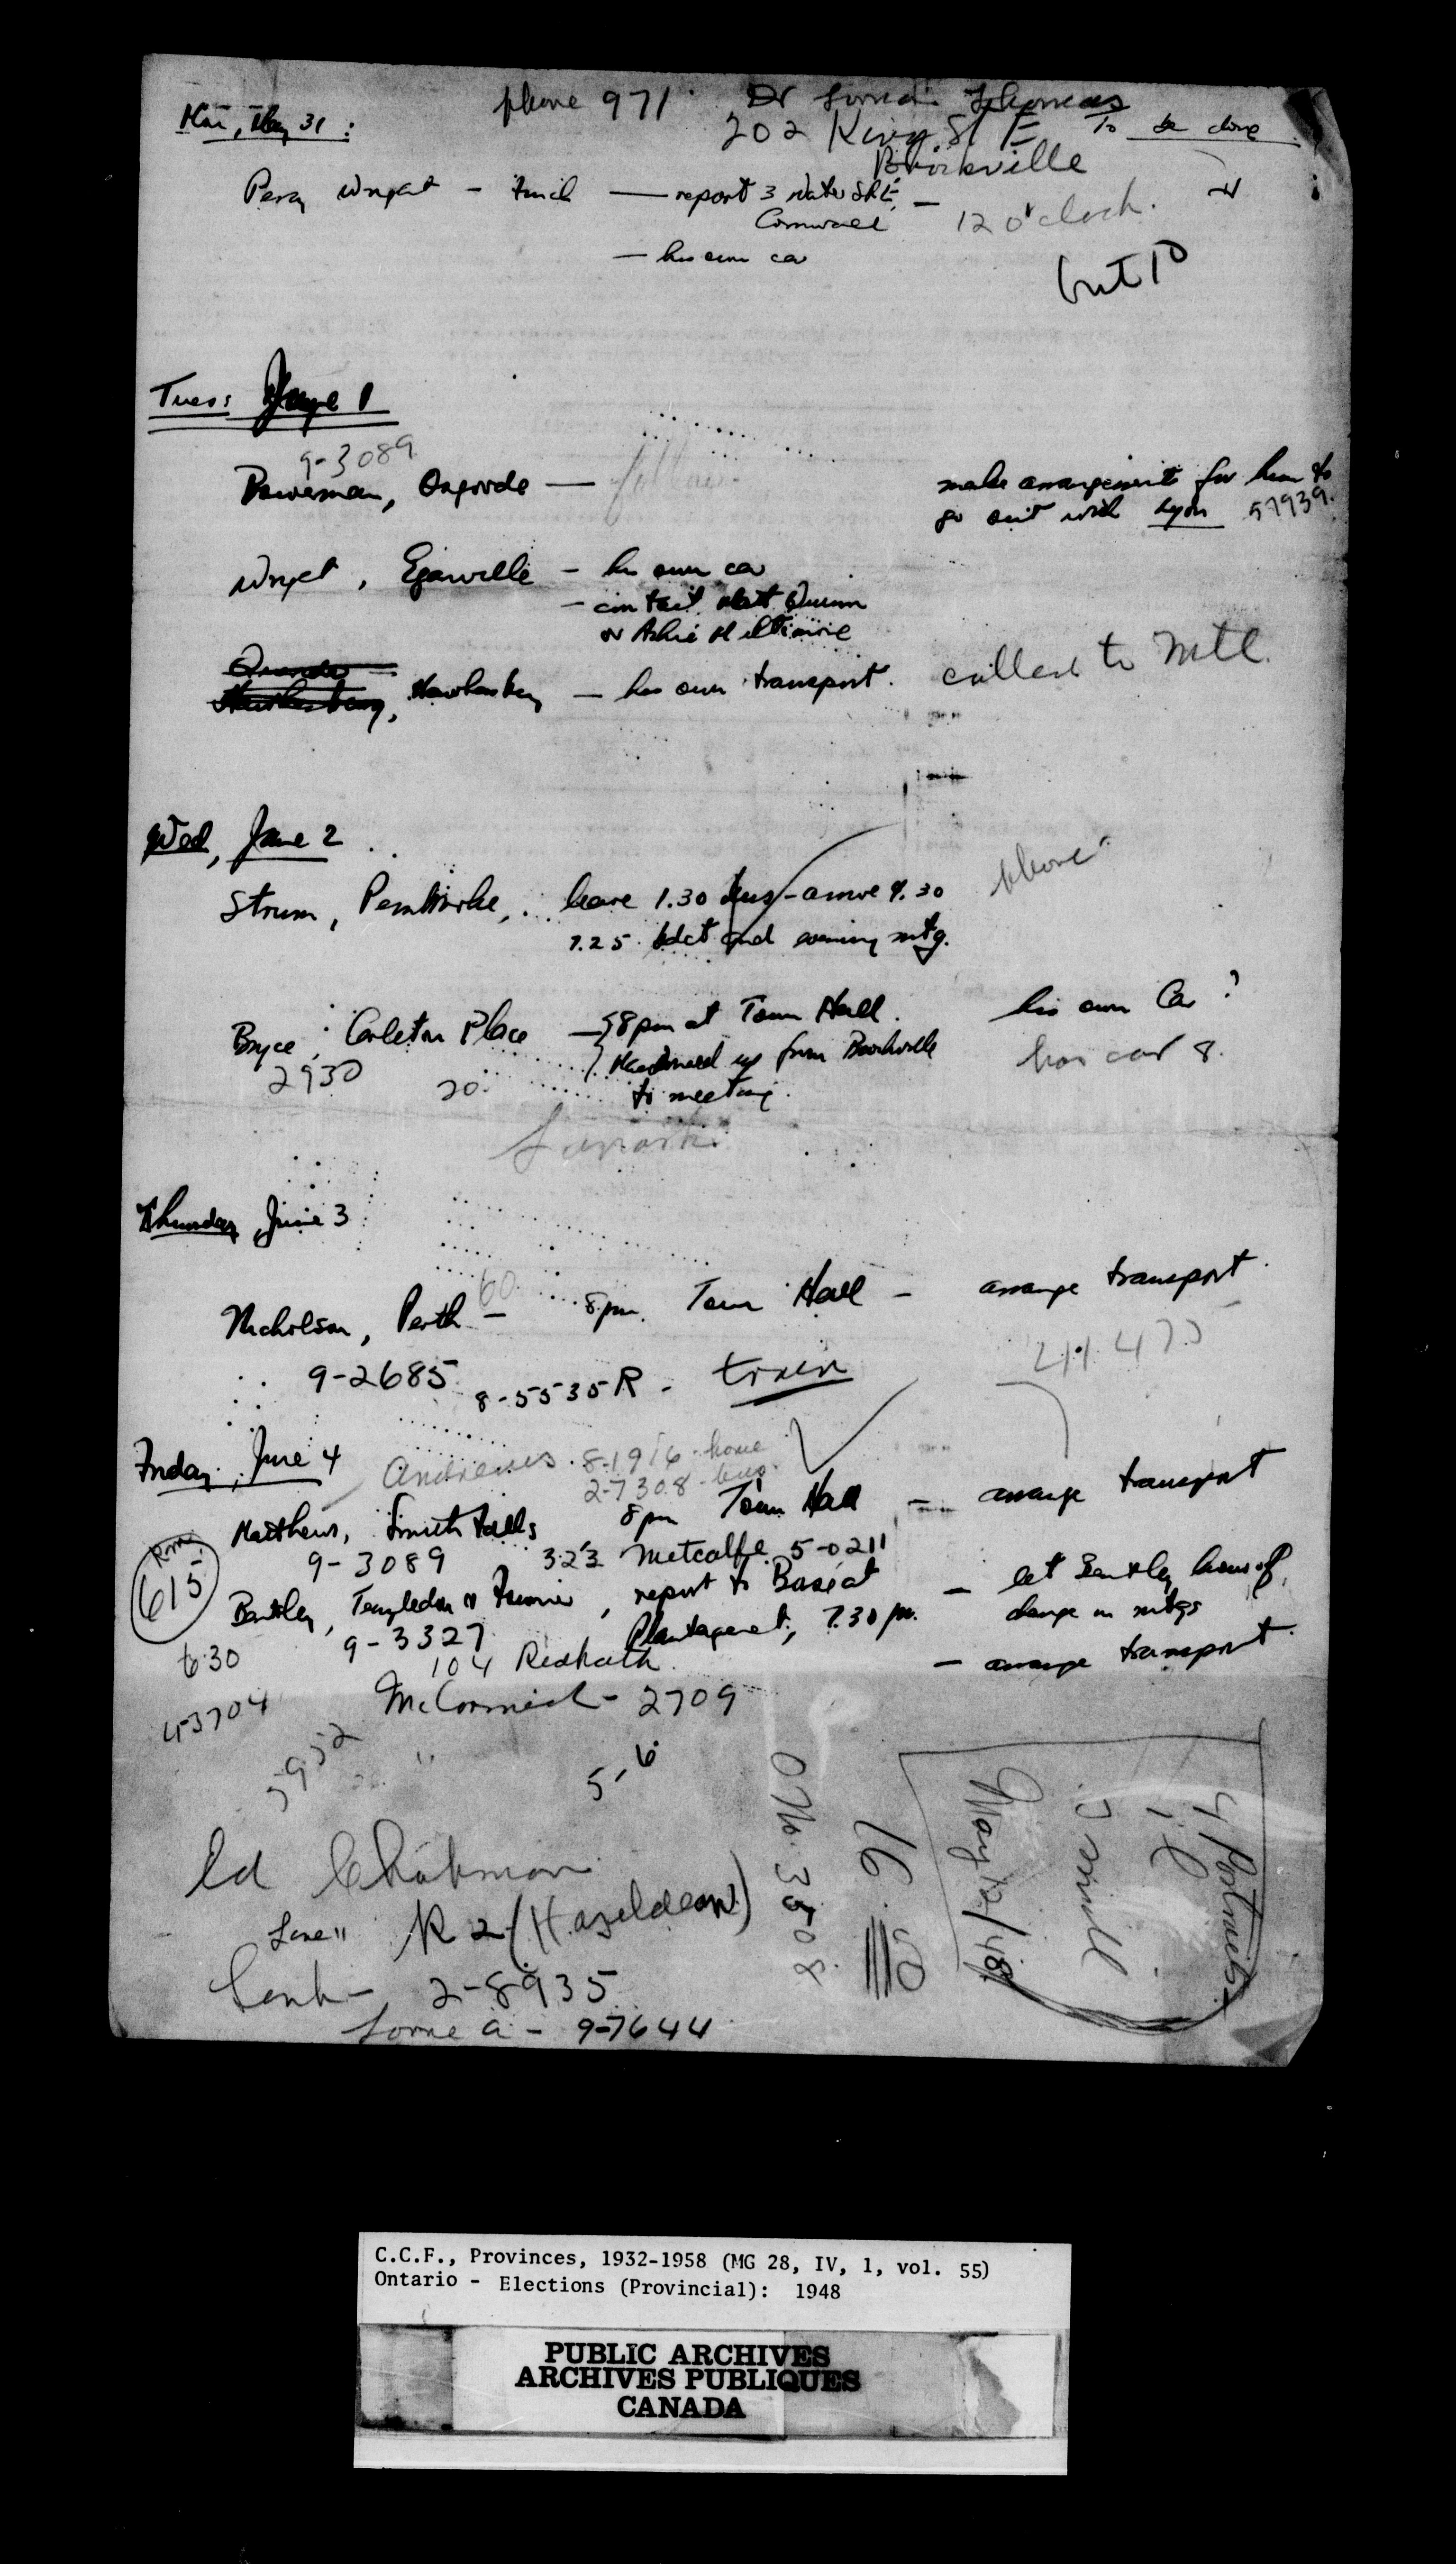 phone 971 Dr Thomas
Mon, May 31: 202 King St E To be done
Brockville
Percy Wright - Finch — report 3 Water St E, —
Cornwall 12 o'clock.
— his own car
Tues: June 1
9-3089
Bowerman, Osgoode — make arrangements for him to
go out with Lyon 57939.
Wright, Eganville - his own car
- contact Quinn
or
Hawkesbury — his own transport. called to Mtl.
Wed, June 2
Strum, Pembroke, leave 1.30 bus - arrive 4.30 phone
7.25 bdct and evening mtg.
Bryce, Carleton Place — 8 pm at Town Hall. his own Car?
2930 20 Macdonald up from Brockville has car 8.
to meeting.
Lanark
Thursday, June 3
Nicholson, Perth - 60 8 pm. Town Hall - arrange transport.
9-2685 8-5535R - train
Friday, June 4 Andrews 8-1916 - home
2-7308 - bus.
Matthews, Smiths Falls 8 pm Town Hall - arrange transport
9-3089 323 Metcalfe 5-0211
Room 615
Bentley, Templeton, report to - let Bentley know of
Plantagenet, 7.30 pm. change in mtgs
9-3327
6:30 104 Redpath - arrange transport.
43704 McCormick - 2709
5952 "
5-6
Ed
Line 11 R 2 (Hazeldean)
2-8935
Lorne a - 9-7644
No. 3808
16
May 12/48
4 Portraits
C.C.F., Provinces, 1932-1958 (MG 28, IV, 1, vol. 55)
Ontario - Elections (Provincial): 1948
PUBLIC ARCHIVES
ARCHIVES PUBLIQUES
CANADA